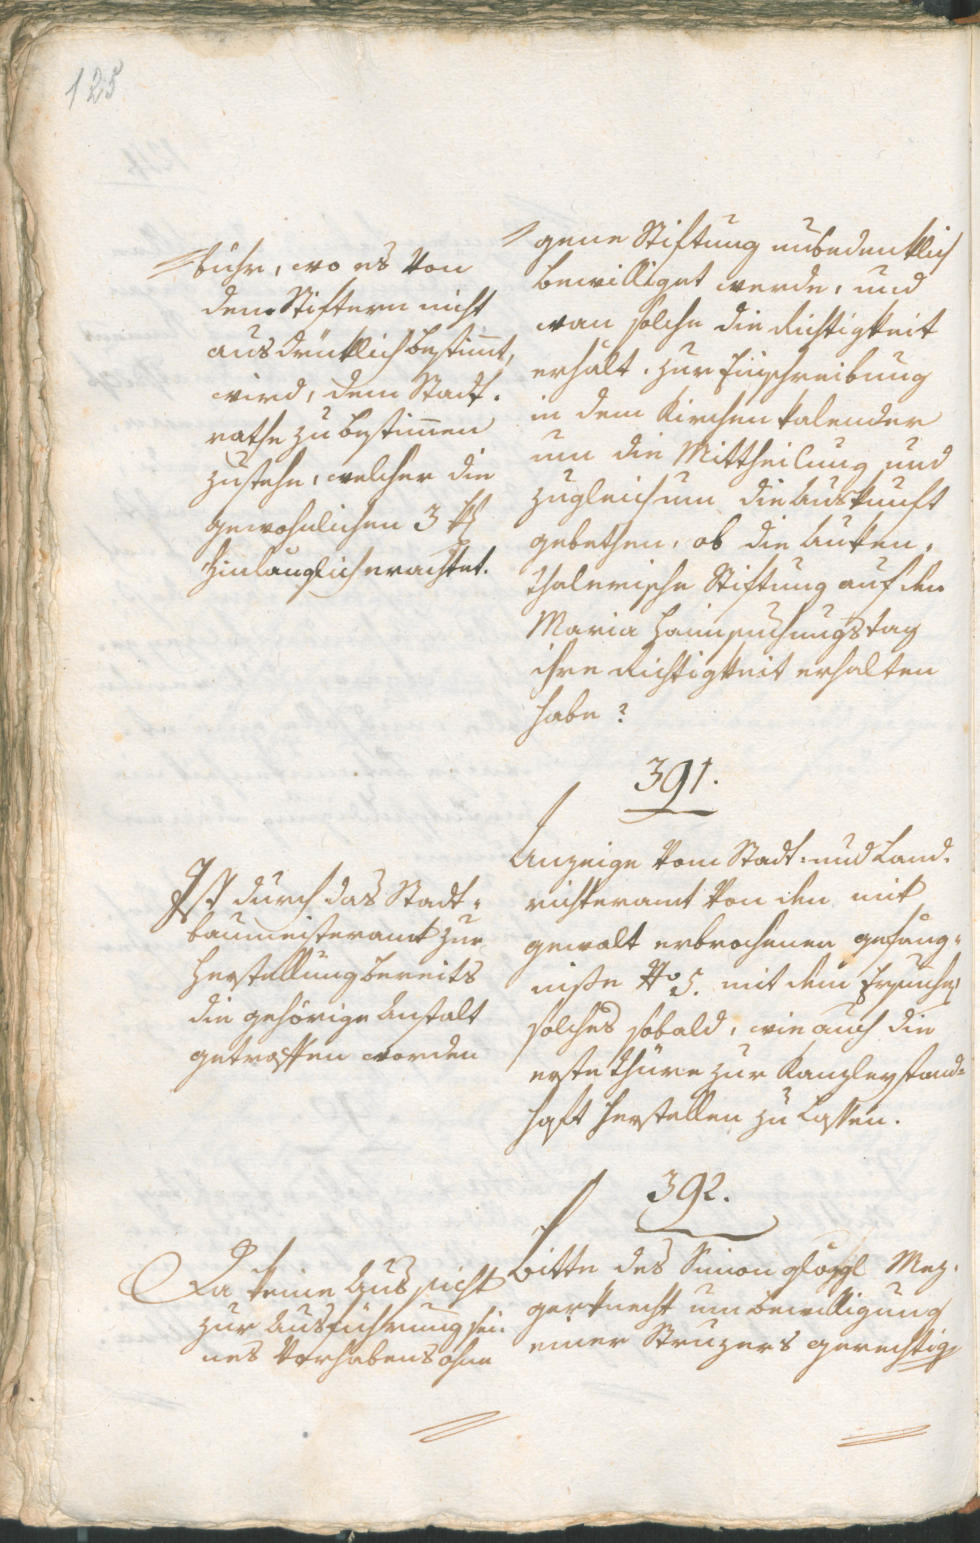 125
bühr, wo es von
den Stiftern nicht
ausdrüklich bestimt,
wird, dem Stadt-
rathe zu bestimen
zustehe, welcher die
gewohnlichen 3 
hinlänglich erachtet.
gene Stiftung unbedenklich
bewilliget werde, und
wan solche die Richtigkeit
erhält. zur Einschreibung
in dem Kirchenkalender
um die Mittheilung und
zugleich um die Auskunft
gebethen, ob die Auken-
thalerische Stiftung auf den
Maria Haimsuchungstag
ihre Richtigkeit erhalten
habe?
391.
Anzeige vom Stadt- und Land-
richteramt von den mit
gewalt erbrochenen gefäng-
niße No 5. mit dem Ersuchen
solches sobald, wie auch die
erste Thüre zur Kanzley stand-
haft herstellen zu lassen.
Ist durch das Stadt-
baumeisteramt zur
Herstellung bereits
die gehörige Anstalt
getroffen worden
392.
Bitte des Simon Mez-
gerknecht um bewilligung
einer Struzers gerechtig
Da keine Aussicht
zur Ausführung sei-
nes Vorhabens ohne